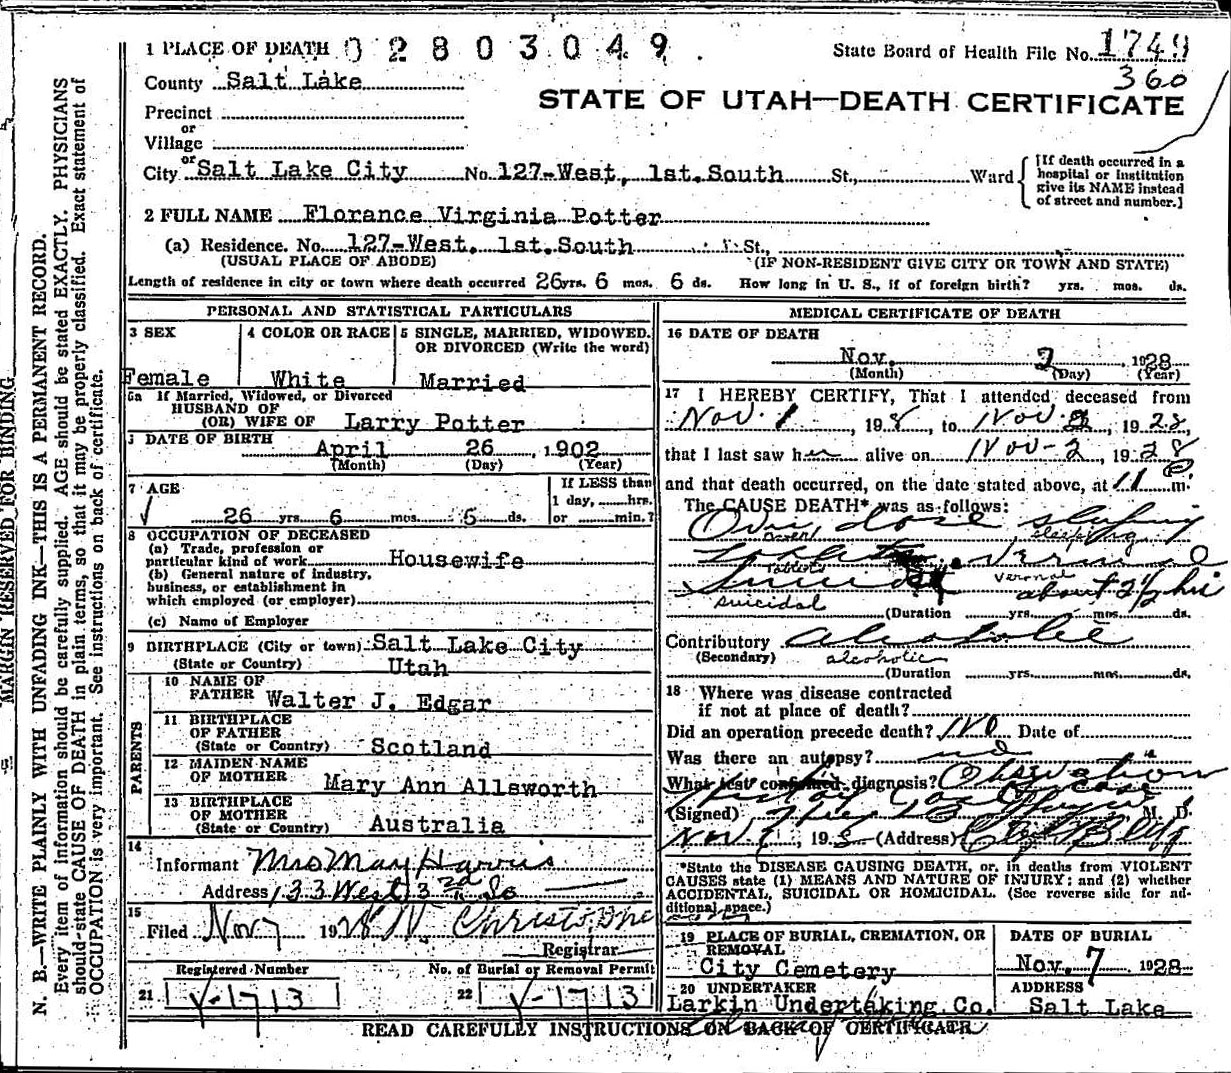 1 PLACE OF DEATH 02803049.
State Board of Health File No. 1749
360
County Salt Lake
STATE OF UTAH—DEATH CERTIFICATE
Precinct
or
Village
or
City Salt Lake City No. 127-West, 1st. South St., Ward
[If death occurred in a hospital or institution give its NAME instead of street and number.]
2 FULL NAME Florance Virginia Potter
(a) Residence. No. 127-West. 1st. South St.,
(USUAL PLACE OF ABODE) (IF NON-RESIDENT GIVE CITY OR TOWN AND STATE)
Length of residence in city or town where death occurred 26 yrs. 6 mos. 6 ds. How long in U. S., if of foreign birth? yrs. mos. ds.
PERSONAL AND STATISTICAL PARTICULARS
3 SEX
Female
4 COLOR OR RACE
White
5 SINGLE, MARRIED, WIDOWED. OR DIVORCED (Write the word)
Married
5a If Married, Widowed, or Divorced
HUSBAND OF
(OR) WIFE OF Larry Potter
DATE OF BIRTH
April 26, 1902
(Month) (Day) (Year)
7 AGE
26 yrs. 6 mos. 5 ds.
If LESS than
1 day, hrs.
or min.?
8 OCCUPATION OF DECEASED
(a) Trade, profession or
particular kind of work Housewife
(b) General nature of industry,
business, or establishment in
which employed (or employer)
(c) Name of Employer
9 BIRTHPLACE (City or town) Salt Lake City
(State or Country) Utah
PARENTS
10 NAME OF
FATHER Walter J. Edgar
11 BIRTHPLACE
OF FATHER
(State or Country) Scotland
12 MAIDEN NAME
OF MOTHER Mary Ann Allsworth
13 BIRTHPLACE
OF MOTHER
(State or Country) Australia
14
Informant Mrs May Harris
Address 133 West 3rd So
15
Filed Nov 7 1928
Registrar
Registered Number
21 V-1713
No. of Burial or Removal Permit
22 V-1713
MEDICAL CERTIFICATE OF DEATH
16 DATE OF DEATH
Nov. 2 1928
(Month) (Day) (Year)
17 I HEREBY CERTIFY, That I attended deceased from
Nov. 1, 198, to Nov 2, 1928,
that I last saw her alive on Nov-2, 1928
and that death occurred, on the date stated above, at 11 P m.
The CAUSE DEATH* was as follows:
Over dose sleeping
over sleeping
tablets
veronal
about 2 1/2 hrs
suicidal
(Duration yrs. mos. ds.
Contributory alcoholic
(Secondary) alcoholic
(Duration yrs. mos. ds.
18 Where was disease contracted
if not at place of death?
Did an operation precede death? No Date of
Was there an autopsy? no
What test confirmed diagnosis? Observation
(Signed) M. D.
Nov 7, 198 (Address) City Bldg
*State the DISEASE CAUSING DEATH, or, in deaths from VIOLENT
CAUSES state (1) MEANS AND NATURE OF INJURY; and (2) whether
ACCIDENTAL, SUICIDAL OR HOMICIDAL. (See reverse side for ad-
ditional space.)
19 PLACE OF BURIAL, CREMATION, OR
REMOVAL
City Cemetery
DATE OF BURIAL
Nov. 7 1928
20 UNDERTAKER
Larkin Undertaking Co.
ADDRESS
Salt Lake
READ CAREFULLY INSTRUCTIONS ON BACK OF CERTIFICATE
MARGIN RESERVED FOR BINDING
N. B.—WRITE PLAINLY WITH UNFADING INK—THIS IS A PERMANENT RECORD.
Every item of information should be carefully supplied. AGE should be stated EXACTLY. PHYSICIANS
should state CAUSE OF DEATH in plain terms, so that it may be properly classified. Exact statement of
OCCUPATION is very important. See instructions on back of certificate.